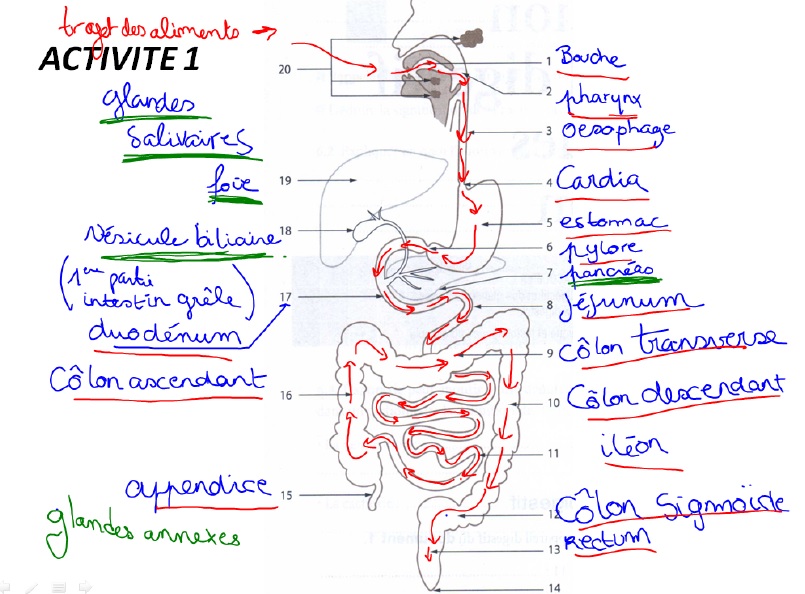 trajet des aliments
ACTIVITE 1
20
glandes
salivaires
foie
19
Vésicule biliaire
18
(1ère partie
intestin grêle)
17
duodénum
Côlon ascendant
16
appendice
15
glandes annexes
1 Bouche
2 pharynx
3 Oesophage
4 Cardia
5 estomac
6 pylore
7 pancréas
8 Jéjunum
9 Côlon transverse
10 Côlon descendant
11 iléon
12 Côlon Sigmoïde
13 Rectum
14